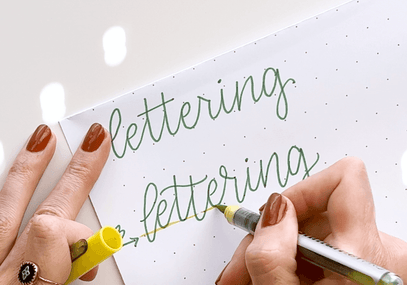 lettering
3→ lettering